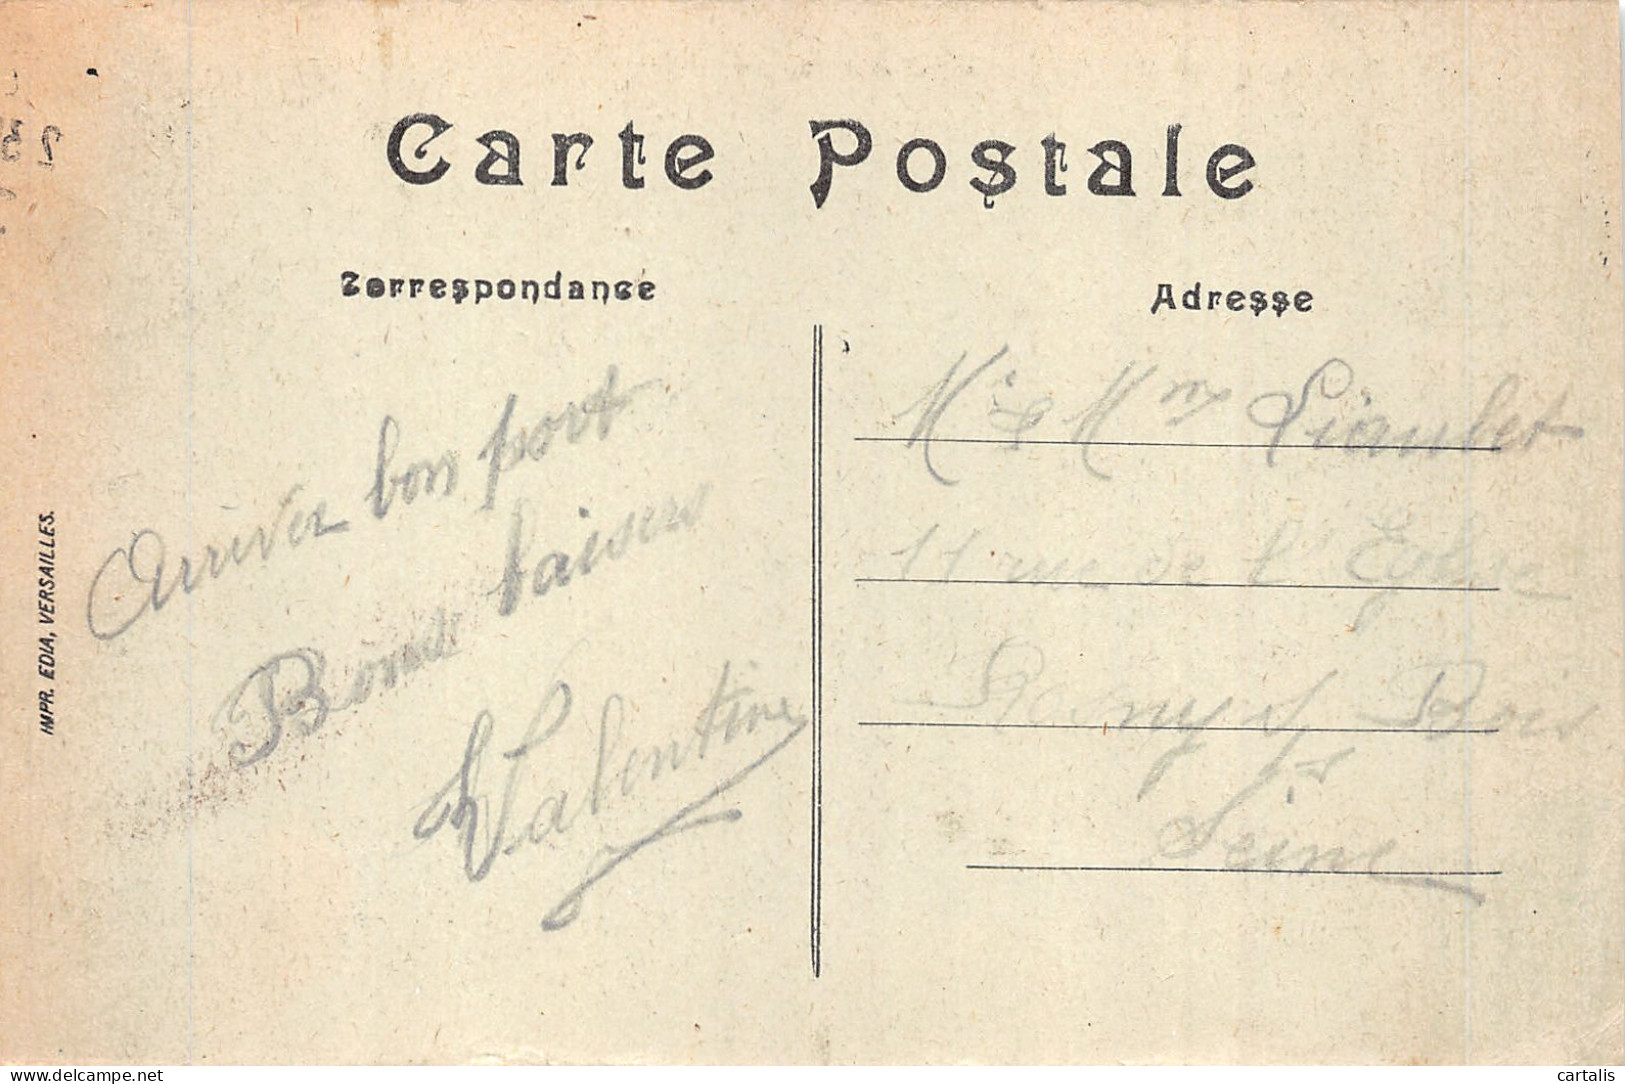 Carte Postale
Correspondance
Adresse
Arrivez bon port
Bons baisers
Valentine
Mr & Mme Liaubet
11 rue de l'Eglise
Rosny s/ Bois
Seine
IMPR. EDIA, VERSAILLES.
www.delcampe.net
cartalis